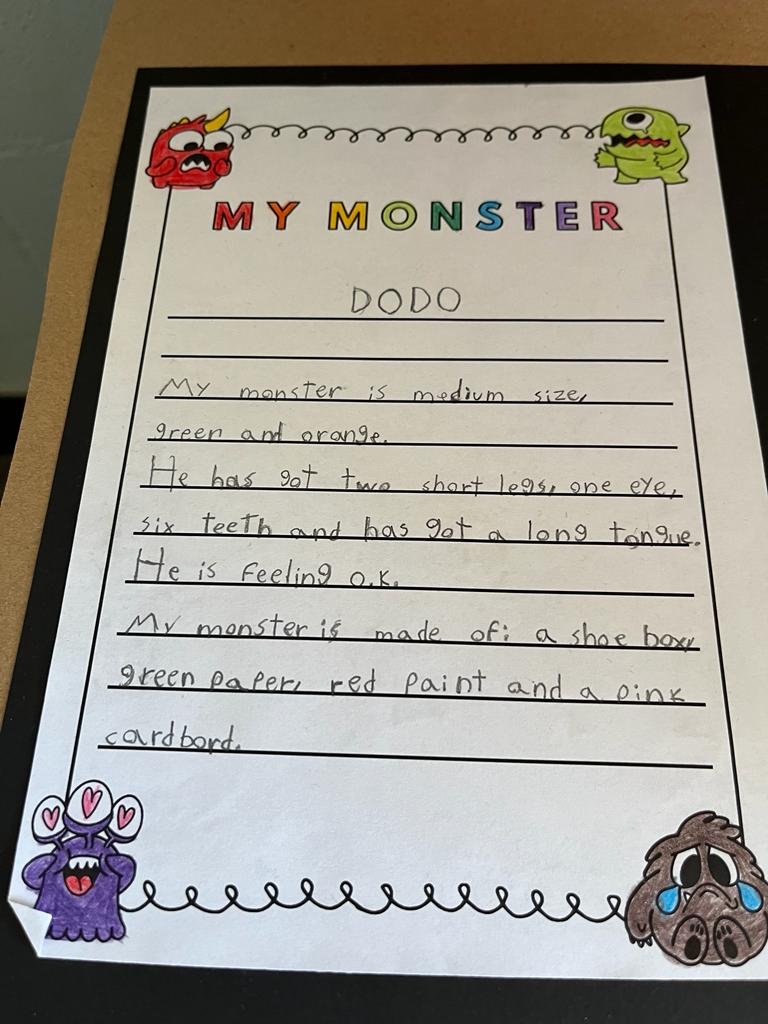 MY MONSTER
DODO
My monster is medium size,
green and orange.
He has got two short legs, one eye,
six teeth and has got a long tongue.
He is feeling o.k.
My monster is made of: a shoe box,
green paper, red paint and a pink
cardbord.